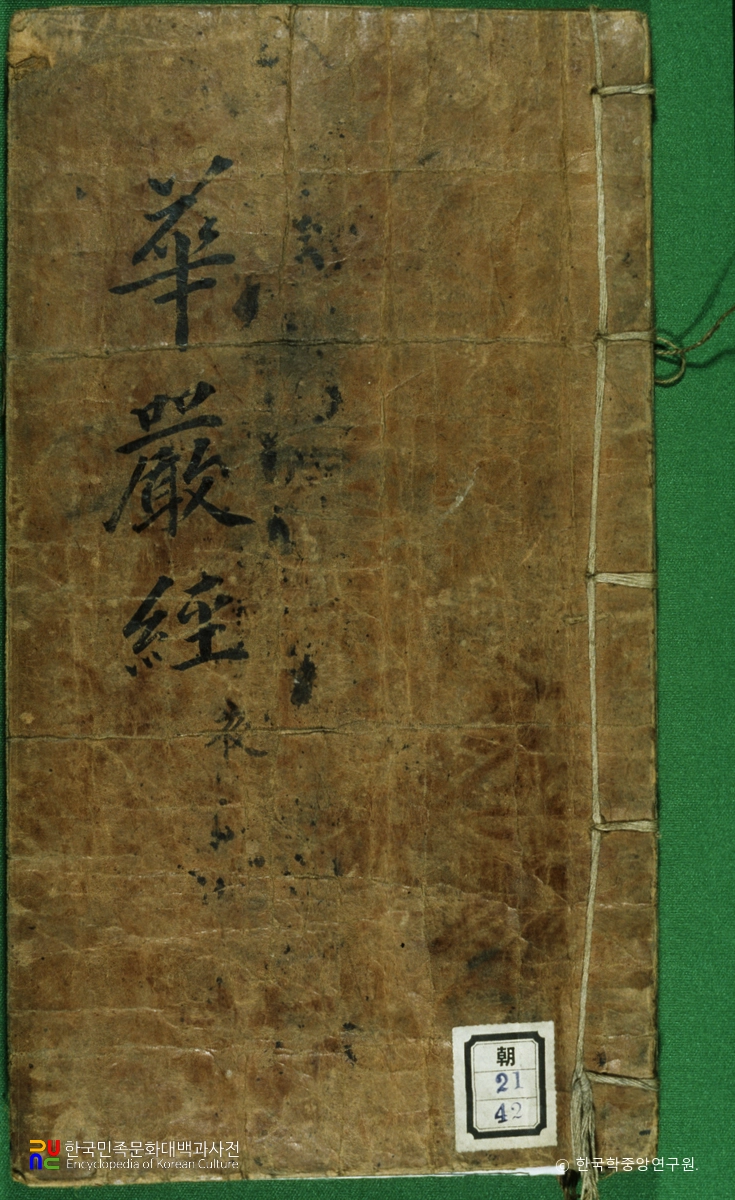 華嚴經
夜
朝
21
42
한국민족문화대백과사전
Encyclopedia of Korean Culture
© 한국학중앙연구원.